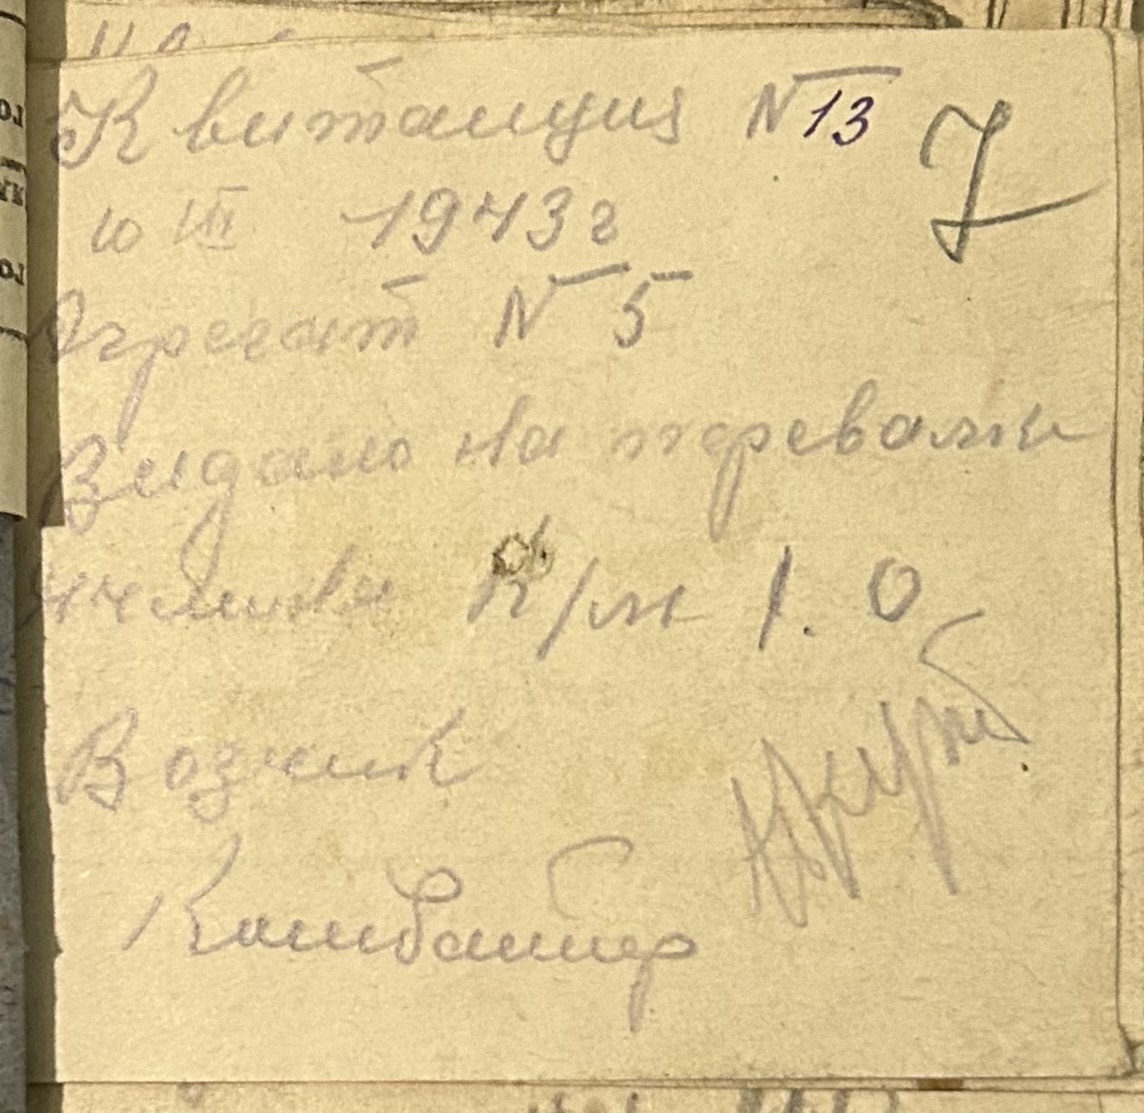 Квитанция N 13
7
10 VIII 1943 г
Агрегат N 5
Видано на перевалки
К/м 1. 0
Возчик
Комбайнер